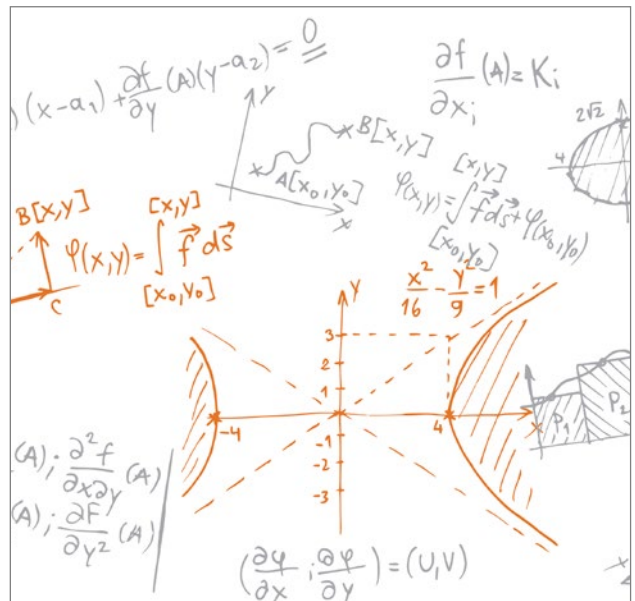 )(x-a₁)+∂f/∂y(A)(y-a₂)=0
∂f/∂xᵢ(A)=Kᵢ
y
B[x,y]
A[x₀,y₀]
x
2√2
4
φ(x,y)=∫[x₀,y₀][x,y] f⃗ds⃗+φ(x₀,y₀)
B[x,y]
C
φ(x,y)=∫[x₀,y₀][x,y] f⃗ ds⃗
x²/16-y²/9=1
y
3
2
1
-4
4
x
-1
-2
-3
P₁
P₂
(A); ∂²f/∂x∂y(A)
(A); ∂F/∂y²(A)
(∂φ/∂x;∂φ/∂y)=(U,V)